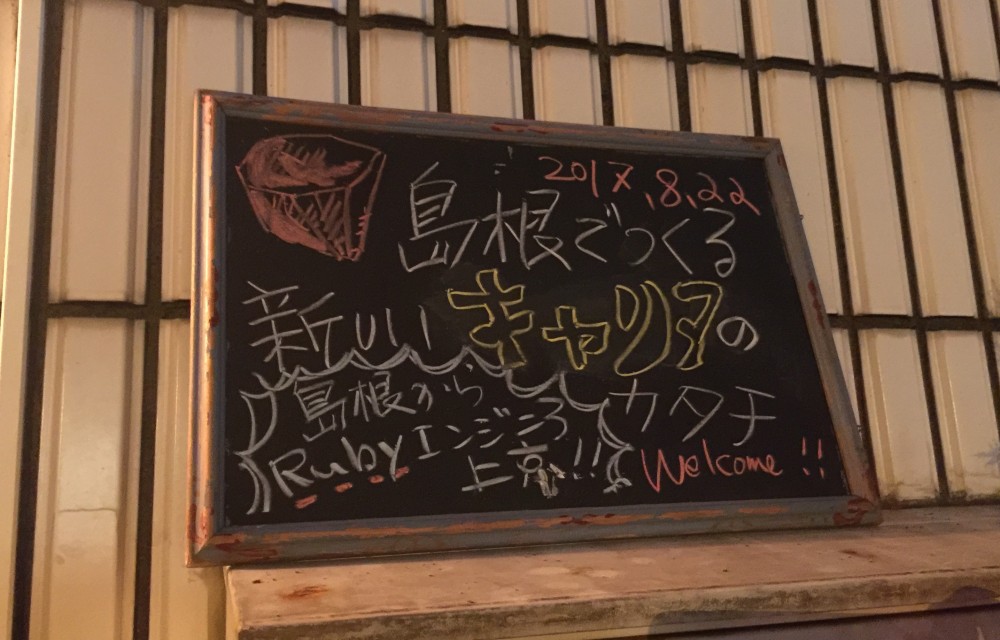 2017.8.22
島根でつくる
新しい キャリアの
カタチ
島根から
Rubyエンジニア
上京!!
Welcome !!